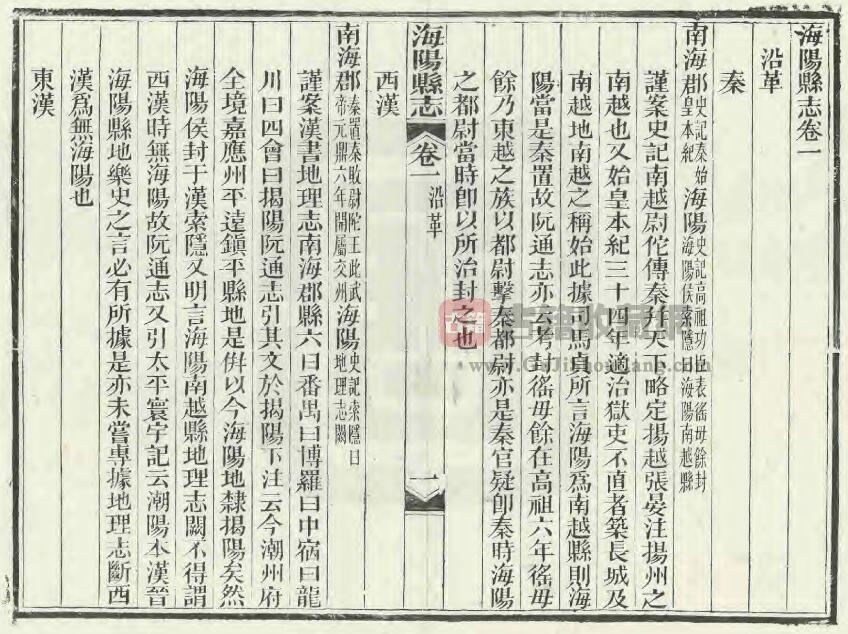 海陽縣志卷一
沿革
秦
南海郡史記秦始皇本紀海陽史記高祖功臣表徭毋餘封海陽侯索隱曰海陽南越縣
謹案史記南越尉佗傳秦并天下略定揚越張晏注揚州之
南越也又始皇本紀三十四年適治獄吏不直者築長城及
南越地南越之稱始此據司馬貞所言海陽爲南越縣則海
陽當是秦置故阮通志亦云考封徭毋餘在高祖六年徭毋
餘乃東越之族以都尉擊秦都尉亦是秦官疑卽秦時海陽
之都尉當時卽以所治封之也
海陽縣志 卷一 沿革 一
西漢
南海郡秦置秦敗尉陀王此武帝元鼎六年開屬交州海陽史記索隱曰地理志闕
謹案漢書地理志南海郡縣六曰番禺曰博羅曰中宿曰龍
川曰四會曰揭陽阮通志引其文於揭陽下注云今潮州府
全境嘉應州平遠鎭平縣地是倂以今海陽地隸揭陽矣然
海陽侯封于漢索隱又明言海陽南越縣地理志闕不得謂
西漢時無海陽故阮通志又引太平寰宇記云潮陽本漢晉
海陽縣地樂史之言必有所據是亦未嘗專據地理志斷西
漢爲無海陽也
東漢
古籍
www.GuJiShouCang.com